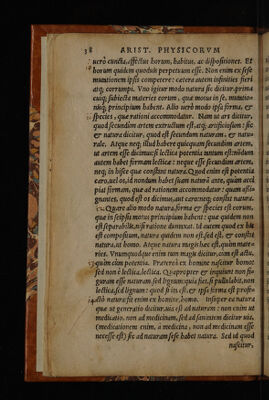 38 ARIST. PHYSICORVM
uerò cuncta, affectus horum, habitus, ac dispositiones. Et
horum quidem quoduis perpetuum esse. Non enim ex sese
mutationem ipsis competere: cætera autem infinities fieri
atq; corrumpi. Vno igitur modo natura sic dicitur, prima
cuiq; subiecta materies eorum, quæ motus in se, mutatio-
nisq; principium habent. Alio uerò modo ipsa forma, &
species, quæ rationi accommodatur. Nam ut ars dicitur,
quod secundum artem extructum est, atq; artificiosum: sic
& natura dicitur, quod est secundum naturam, & natu-
rale. Atque neq; illud habere quicquam secundum artem,
ut artem esse dicimus, si lectica potentia tantum est, nondum
autem habet formam lecticæ: neque esse secundum artem,
neq; in hisce quæ constant natura. Quod enim est potentia
caro, uel os, id nondum habet suam naturã ante, quàm acci
piat formam, quæ ad rationem accommodatur: quam assi-
gnantes, quod est os dicimus, aut caro: neq; constat natura.
Quare alio modo natura, forma & species est eorum,
quæ in seipsis motus principium habent: quæ quidem non
est separabilis, nisi ratione dumtaxat. Id autem quod ex his
est compositum, natura quidem non est, sed est, & constat
natura, ut homo. Atque natura magis hæc est, quàm mate-
ries. Vnumquodque enim tum magis dicitur, cum est actu,
quàm cùm potentia. Præterea ex homine nascitur homo:
sed non è lectica, lectica. Quapropter & inquiunt non fi-
guram esse naturam, sed lignum: quia fiet, si pullulabit, non
lectica, sed lignum: quod si hæc est, & ipsa forma est profe-
ctò natura: fit enim ex homine, homo. Insuper ea natura
quæ ut generatio dicitur, uia est ad naturam: non enim ut
medicatio, non ad medicinam, sed ad sanitatem dicitur uia,
(medicationem enim, à medicina, non ad medicinam esse
necesse est) sic ad naturam sese habet natura. Sed id quod
nascitur,